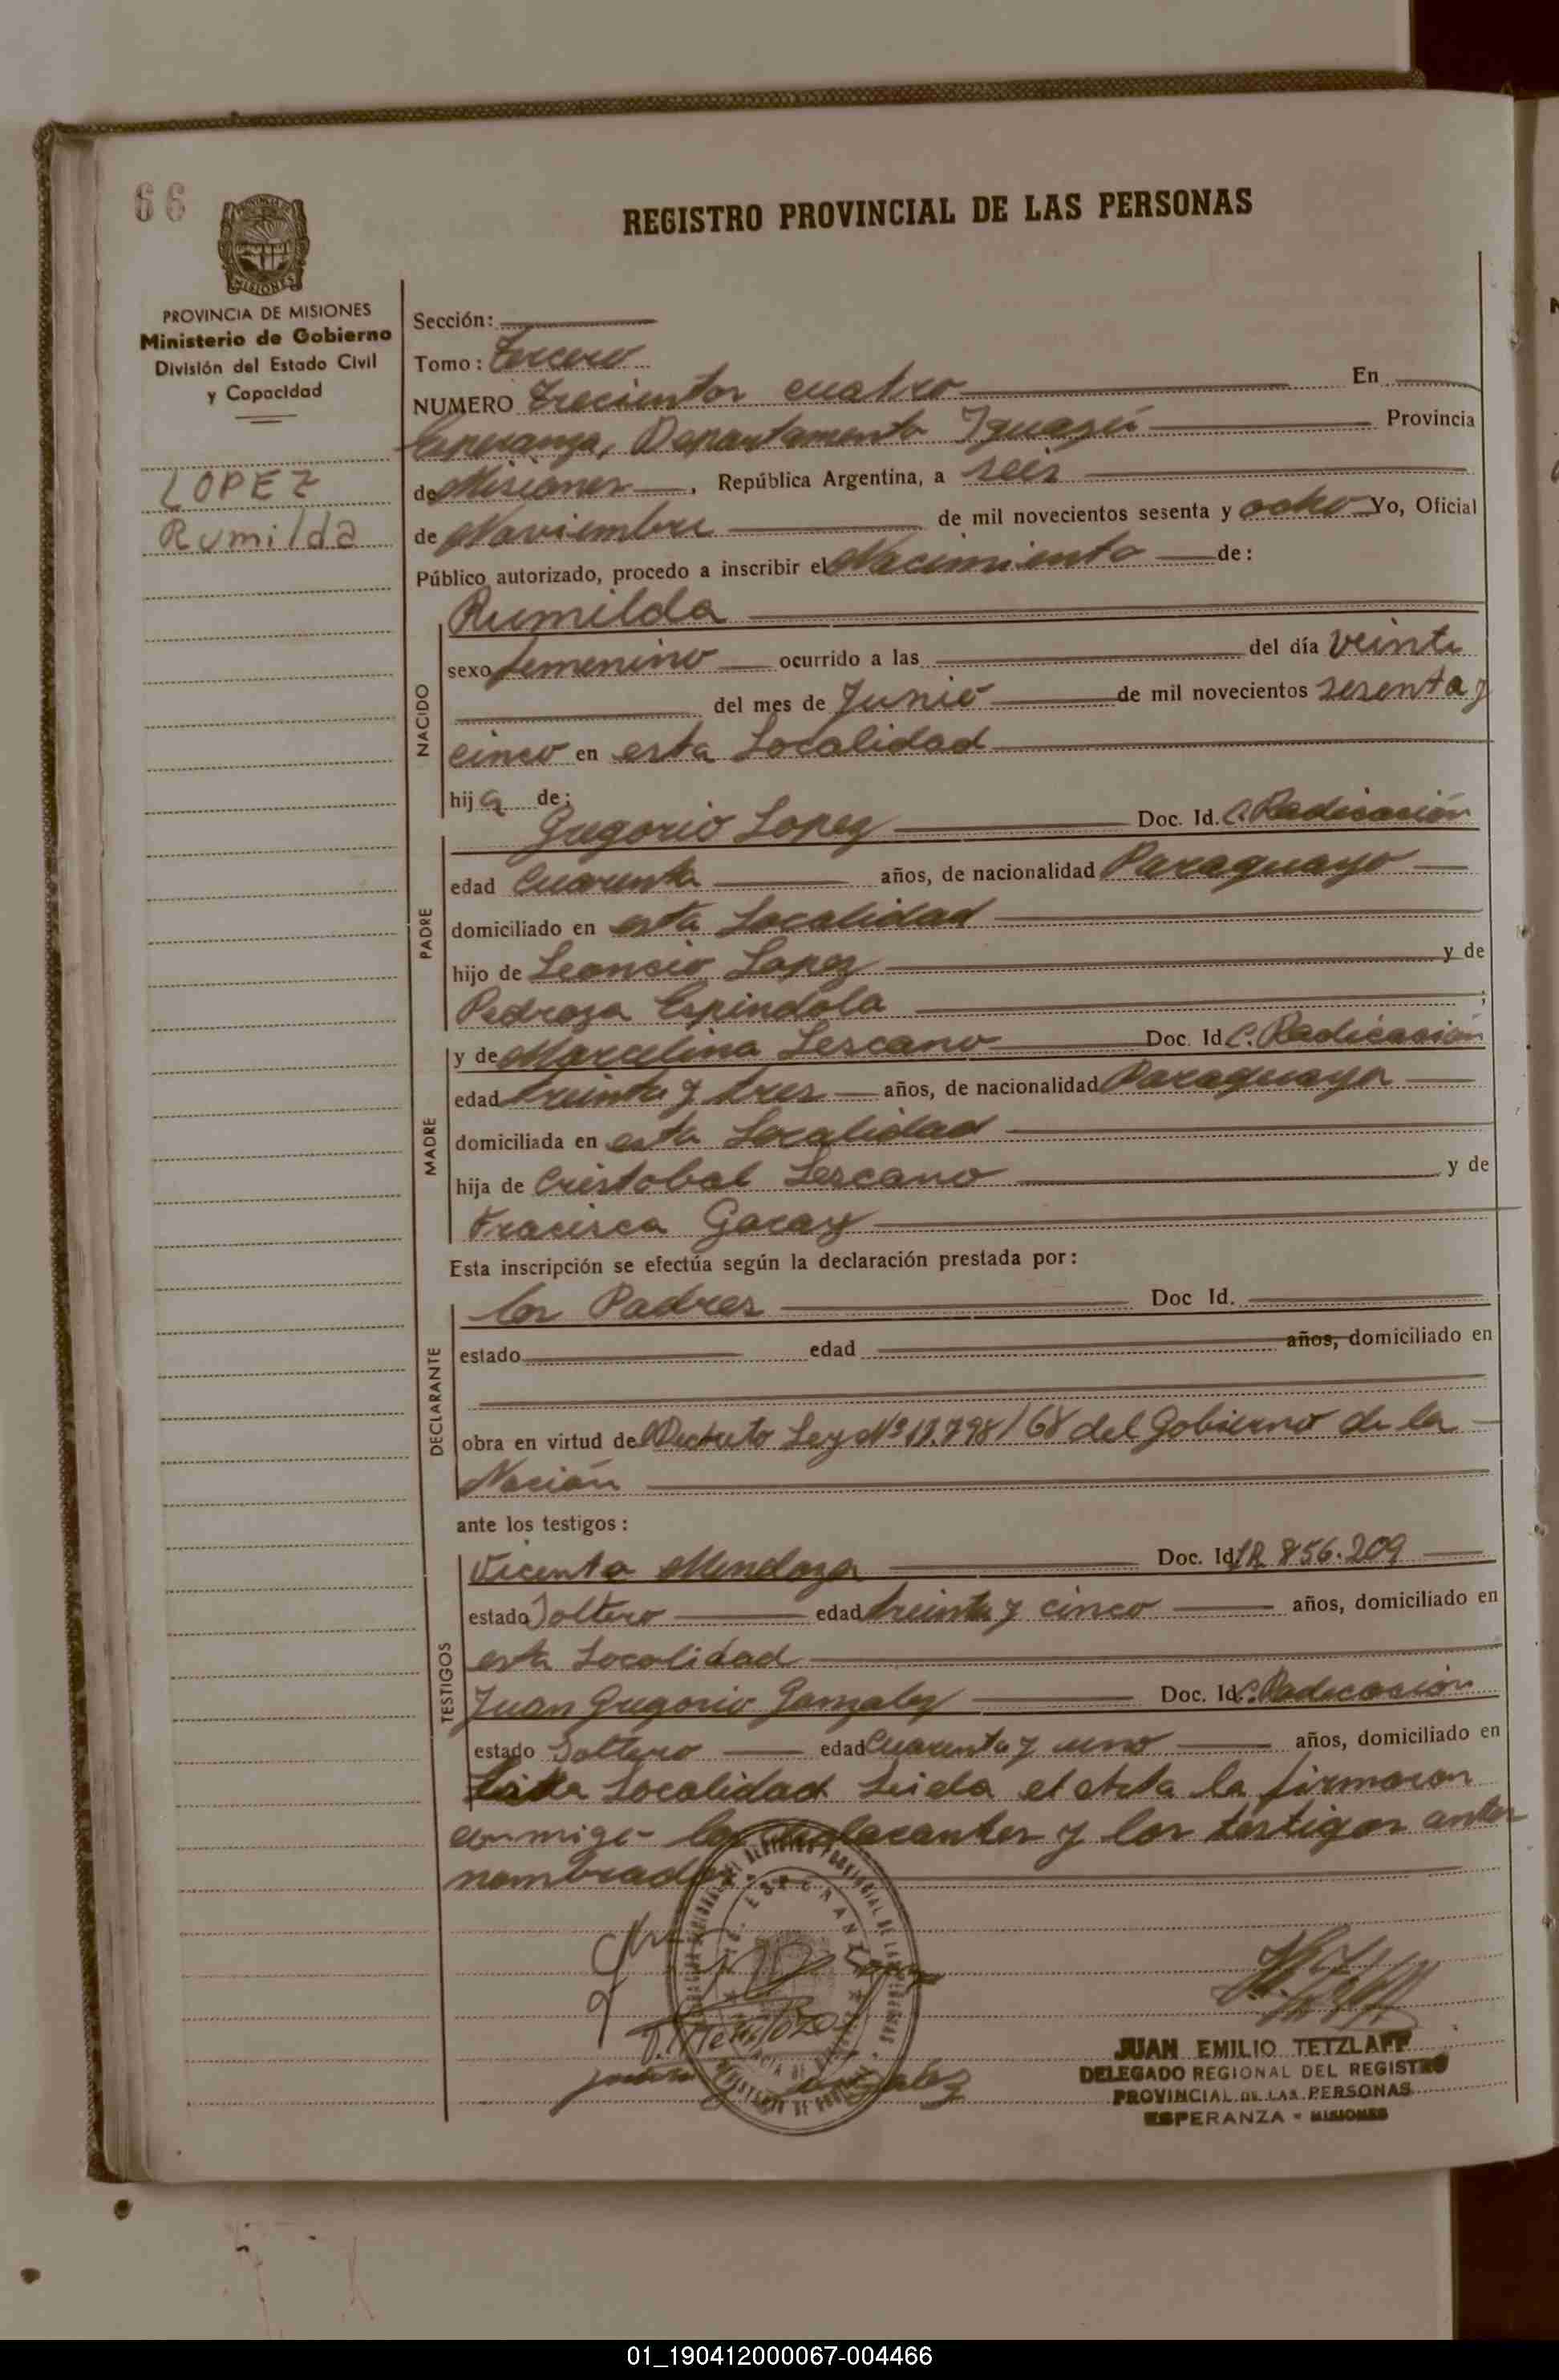 66
REGISTRO PROVINCIAL DE LAS PERSONAS
PROVINCIA DE MISIONES
Ministerio de Gobierno
División del Estado Civil
y Capacidad
LOPEZ
Rumilda
Sección:
Tomo: Tercero
NUMERO Trecientos cuatro En
Esperanza, Departamento Iguazú Provincia
de Misiones, República Argentina, a seis
de Noviembre de mil novecientos sesenta y ocho Yo, Oficial
Público autorizado, procedo a inscribir el Nacimiento de:
NACIDO
Rumilda
sexo femenino ocurrido a las del día veinte
del mes de Junio de mil novecientos sesenta y
cinco en esta Localidad
hija de:
PADRE
Gregorio Lopez Doc. Id. C. Radicación
edad cuarenta años, de nacionalidad Paraguayo
domiciliado en esta Localidad
hijo de Leoncio Lopez y de
Pedroza Espindola ;
MADRE
y de Marcelina Lescano Doc. Id C. Radicación
edad treinta y tres años, de nacionalidad Paraguaya
domiciliada en esta Localidad
hija de Cristobal Lescano y de
Fracisca Garay
Esta inscripción se efectúa según la declaración prestada por:
DECLARANTE
los Padres Doc Id.
estado edad años, domiciliado en
obra en virtud de Decreto Ley Nº 17.798/68 del Gobierno de la
Nación
ante los testigos:
TESTIGOS
Vicente Mendoza Doc. Id 856.209
estado Soltero edad treinta y cinco años, domiciliado en
esta Localidad
Juan Gregorio Gonzalez Doc. Id C. Radicación
estado Soltero edad Cuarenta y uno años, domiciliado en
Localidad Leida el Acta la firmaron
conmigo los declarantes y los testigos antes
nombrados.
JUAN EMILIO TETZLAFF
DELEGADO REGIONAL DEL REGISTRO
PROVINCIAL DE LAS PERSONAS
ESPERANZA - MISIONES
01_190412000067-004466